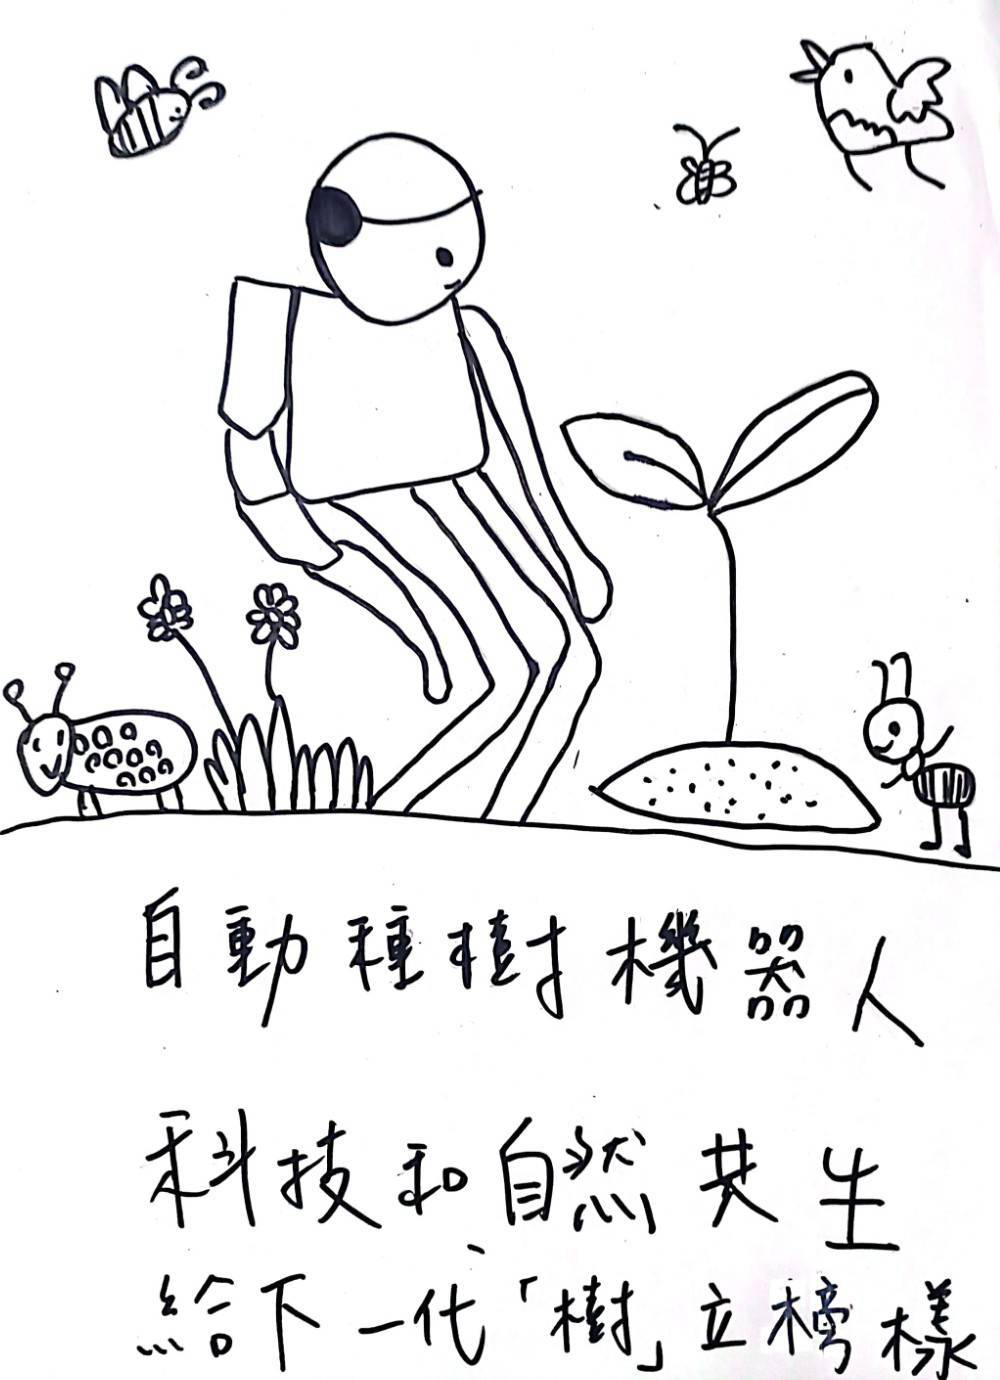 自動種樹機器人
科技和自然共生
給下一代「樹」立榜樣